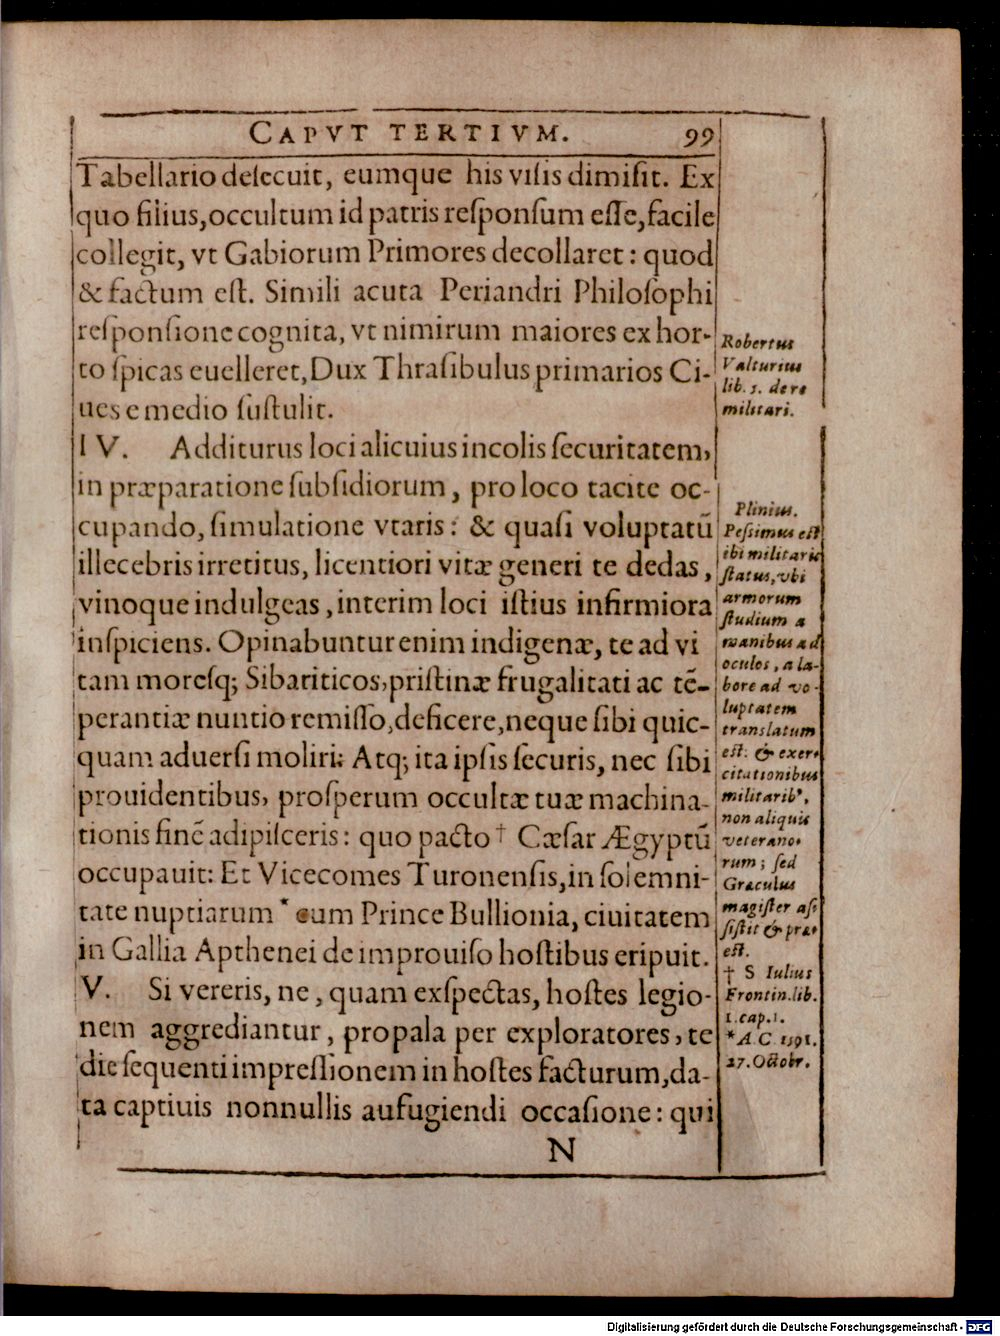 CAPVT TERTIVM. 99
Tabellario deſecuit, eumque his viſis dimiſit. Ex
quo filius, occultum id patris reſponſum eſſe, facile
collegit, vt Gabiorum Primores decollaret: quod
& factum eſt. Simili acuta Periandri Philoſophi
reſponſione cognita, vt nimirum maiores ex hor-
to ſpicas euelleret, Dux Thraſibulus primarios Ci-
ues e medio ſuſtulit.
IV. Additurus loci alicuius incolis ſecuritatem,
in præparatione ſubſidiorum, pro loco tacite oc-
cupando, ſimulatione vtaris: & quaſi voluptatū
illecebris irretitus, licentiori vitæ generi te dedas,
vinoque indulgeas, interim loci iſtius infirmiora
inſpiciens. Opinabuntur enim indigenæ, te ad vi
tam moreſq; Sibariticos, priſtinæ frugalitati ac tē-
perantiæ nuntio remiſſo, deficere, neque ſibi quic-
quam aduerſi moliri: Atq; ita ipſis ſecuris, nec ſibi
prouidentibus, proſperum occultæ tuæ machina-
tionis finē adipiſceris: quo pacto † Cæſar Ægyptū
occupauit: Et Vicecomes Turonenſis, in ſolemni-
tate nuptiarum * cum Prince Bullionia, ciuitatem
in Gallia Apthenei de improuiſo hoſtibus eripuit.
V. Si vereris, ne, quam exſpectas, hoſtes legio-
nem aggrediantur, propala per exploratores, te
die ſequenti impreſſionem in hoſtes facturum, da-
ta captiuis nonnullis aufugiendi occaſione: qui
N
Robertus
Valturius
lib. 5. de re
militari.
Plinius.
Peſsimus eſt
ibi militaris
ſtatus, vbi
armorum
ſtudium a
manibus ad
oculos, a la-
bore ad vo-
luptatem
translatum
eſt: & exer-
citationibus
militarib⁹,
non aliquis
veterano-
rum; ſed
Græculus
magiſter aſ-
ſiſtit & præ-
eſt.
† S Iulius
Frontin. lib.
1. cap. 1.
* A. C. 1591.
27. Octobr.
Digitalisierung gefördert durch die Deutsche Forschungsgemeinschaft - DFG